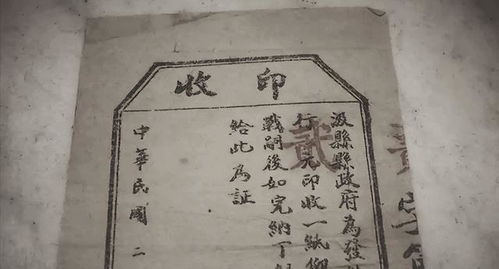 印收
汲縣縣政府為發
印收一紙仰
戰嗣後如完納丁
給此為証
中華民國二
貳